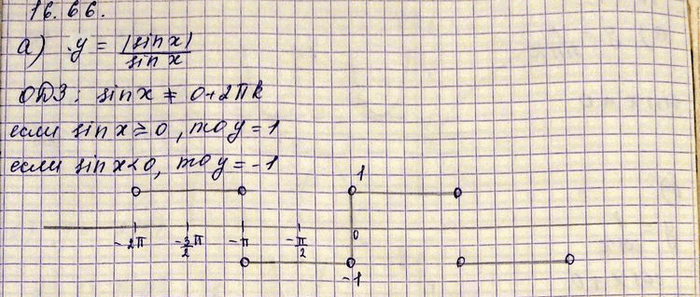 16.66.
а) y = |sin x| / sin x
ОДЗ: sin x ≠ 0+2πk
если sin x ≥ 0, то y = 1
если sin x < 0, то y = -1
1
-2π -3/2 π -π -π/2 0
-1